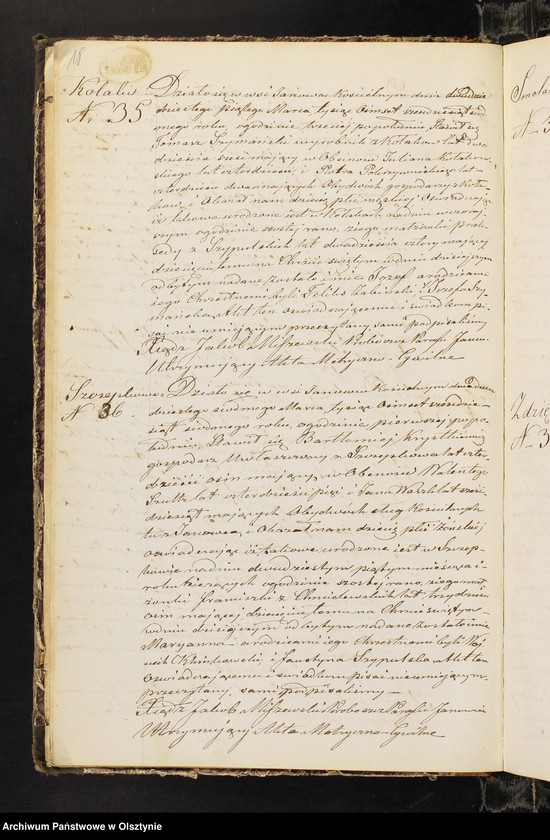 18
Kołaki
N. 35
Działo się w wsi Janowie Kościelnym dnia dwudzie-
dziestego piątego Marca tysiąc ośmset sześćdziesiąt siód-
mego roku o godzinie trzeciej po południu Stawił się
Tomasz Szymański wyrobnik z Kołaków lat dwa-
dzieścia mający w Obecności Juliana Kołakow-
skiego lat czterdzieści, i Piotra Pokrzywnickiego lat
czterdzieści dwa mających Obydwóch gospodarzy z Koła-
ków, i Okazał nam dziecię płci męzkiej Oświadczając
iż takowe urodzone jest w Kołakach na dniu wczoraj-
szym o godzinie szóstej rano, z jego małżonki
z Szypulskich lat dwadzieścia cztery mającej
dziecięciu temu na Chrzcie świętym w dniu dzisiejszym
odbytym nadane zostało imie Józef a rodzicami
jego Chrzestnemi byli Feliks Zaleski, i Józefa Szy-
mańska, Akt ten oświadczającemu i świadkom pi-
sać nie umiejącym przeczytany, sami podpisaliśmy
Xiądz Jakób Miszewski Proboszcz Parafii Janowo
Utrzymujący Akta Metryczno-Cywilne
Szczepkowo
N. 36.
Działo się w wsi Janowie Kościelnym dnia dwu-
dziestego siódmego Marca tysiąc ośmset sześćdzie-
siąt siódmego roku, o godzinie pierwszej po po-
łudniu, Stawił się Bartłomiej
gospodarz w Szczepkowie lat czter-
dzieści ośm mający, w Obecności Walentego
Szulk lat czterdzieści pięć i Jana lat sześć-
dziesiąt mających Obydwóch sług Kościelnych
tu z Janowca, i Okazał nam dziecię płci żeńskiej
oświadczając iż takowe urodzone jest w Szczep-
kowie na dniu dwudziestym piątym miesiąca i
roku bieżących o godzinie szóstej rano, z jego mał-
żonki Franciszki z Chmielewskich lat trzydzieści
ośm mającej dziecięciu temu na Chrzcie świętym
w dniu dzisiejszym odbytym nadane zostało imie
Maryanna a rodzicami jego Chrzestnemi byli Woj-
ciech Klimkowski, i Faustyna Szypulska Akt ten
oświadczającemu i świadkom pisać nie umiejącym
przeczytany, sami podpisaliśmy
Xiądz Jakób Miszewski Proboszcz Parafii Janowo
Utrzymujący Akta Metryczno-Cywilne
Archiwum Państwowe w Olsztynie